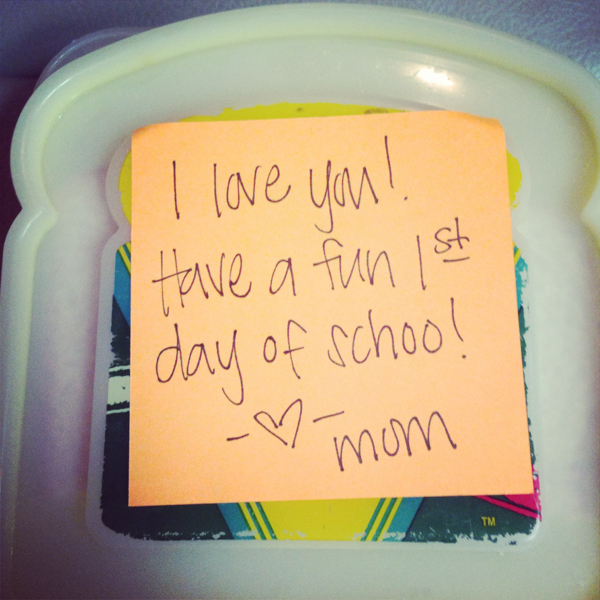 I love you!
Have a fun 1st
day of school!
-♡- mom
TM